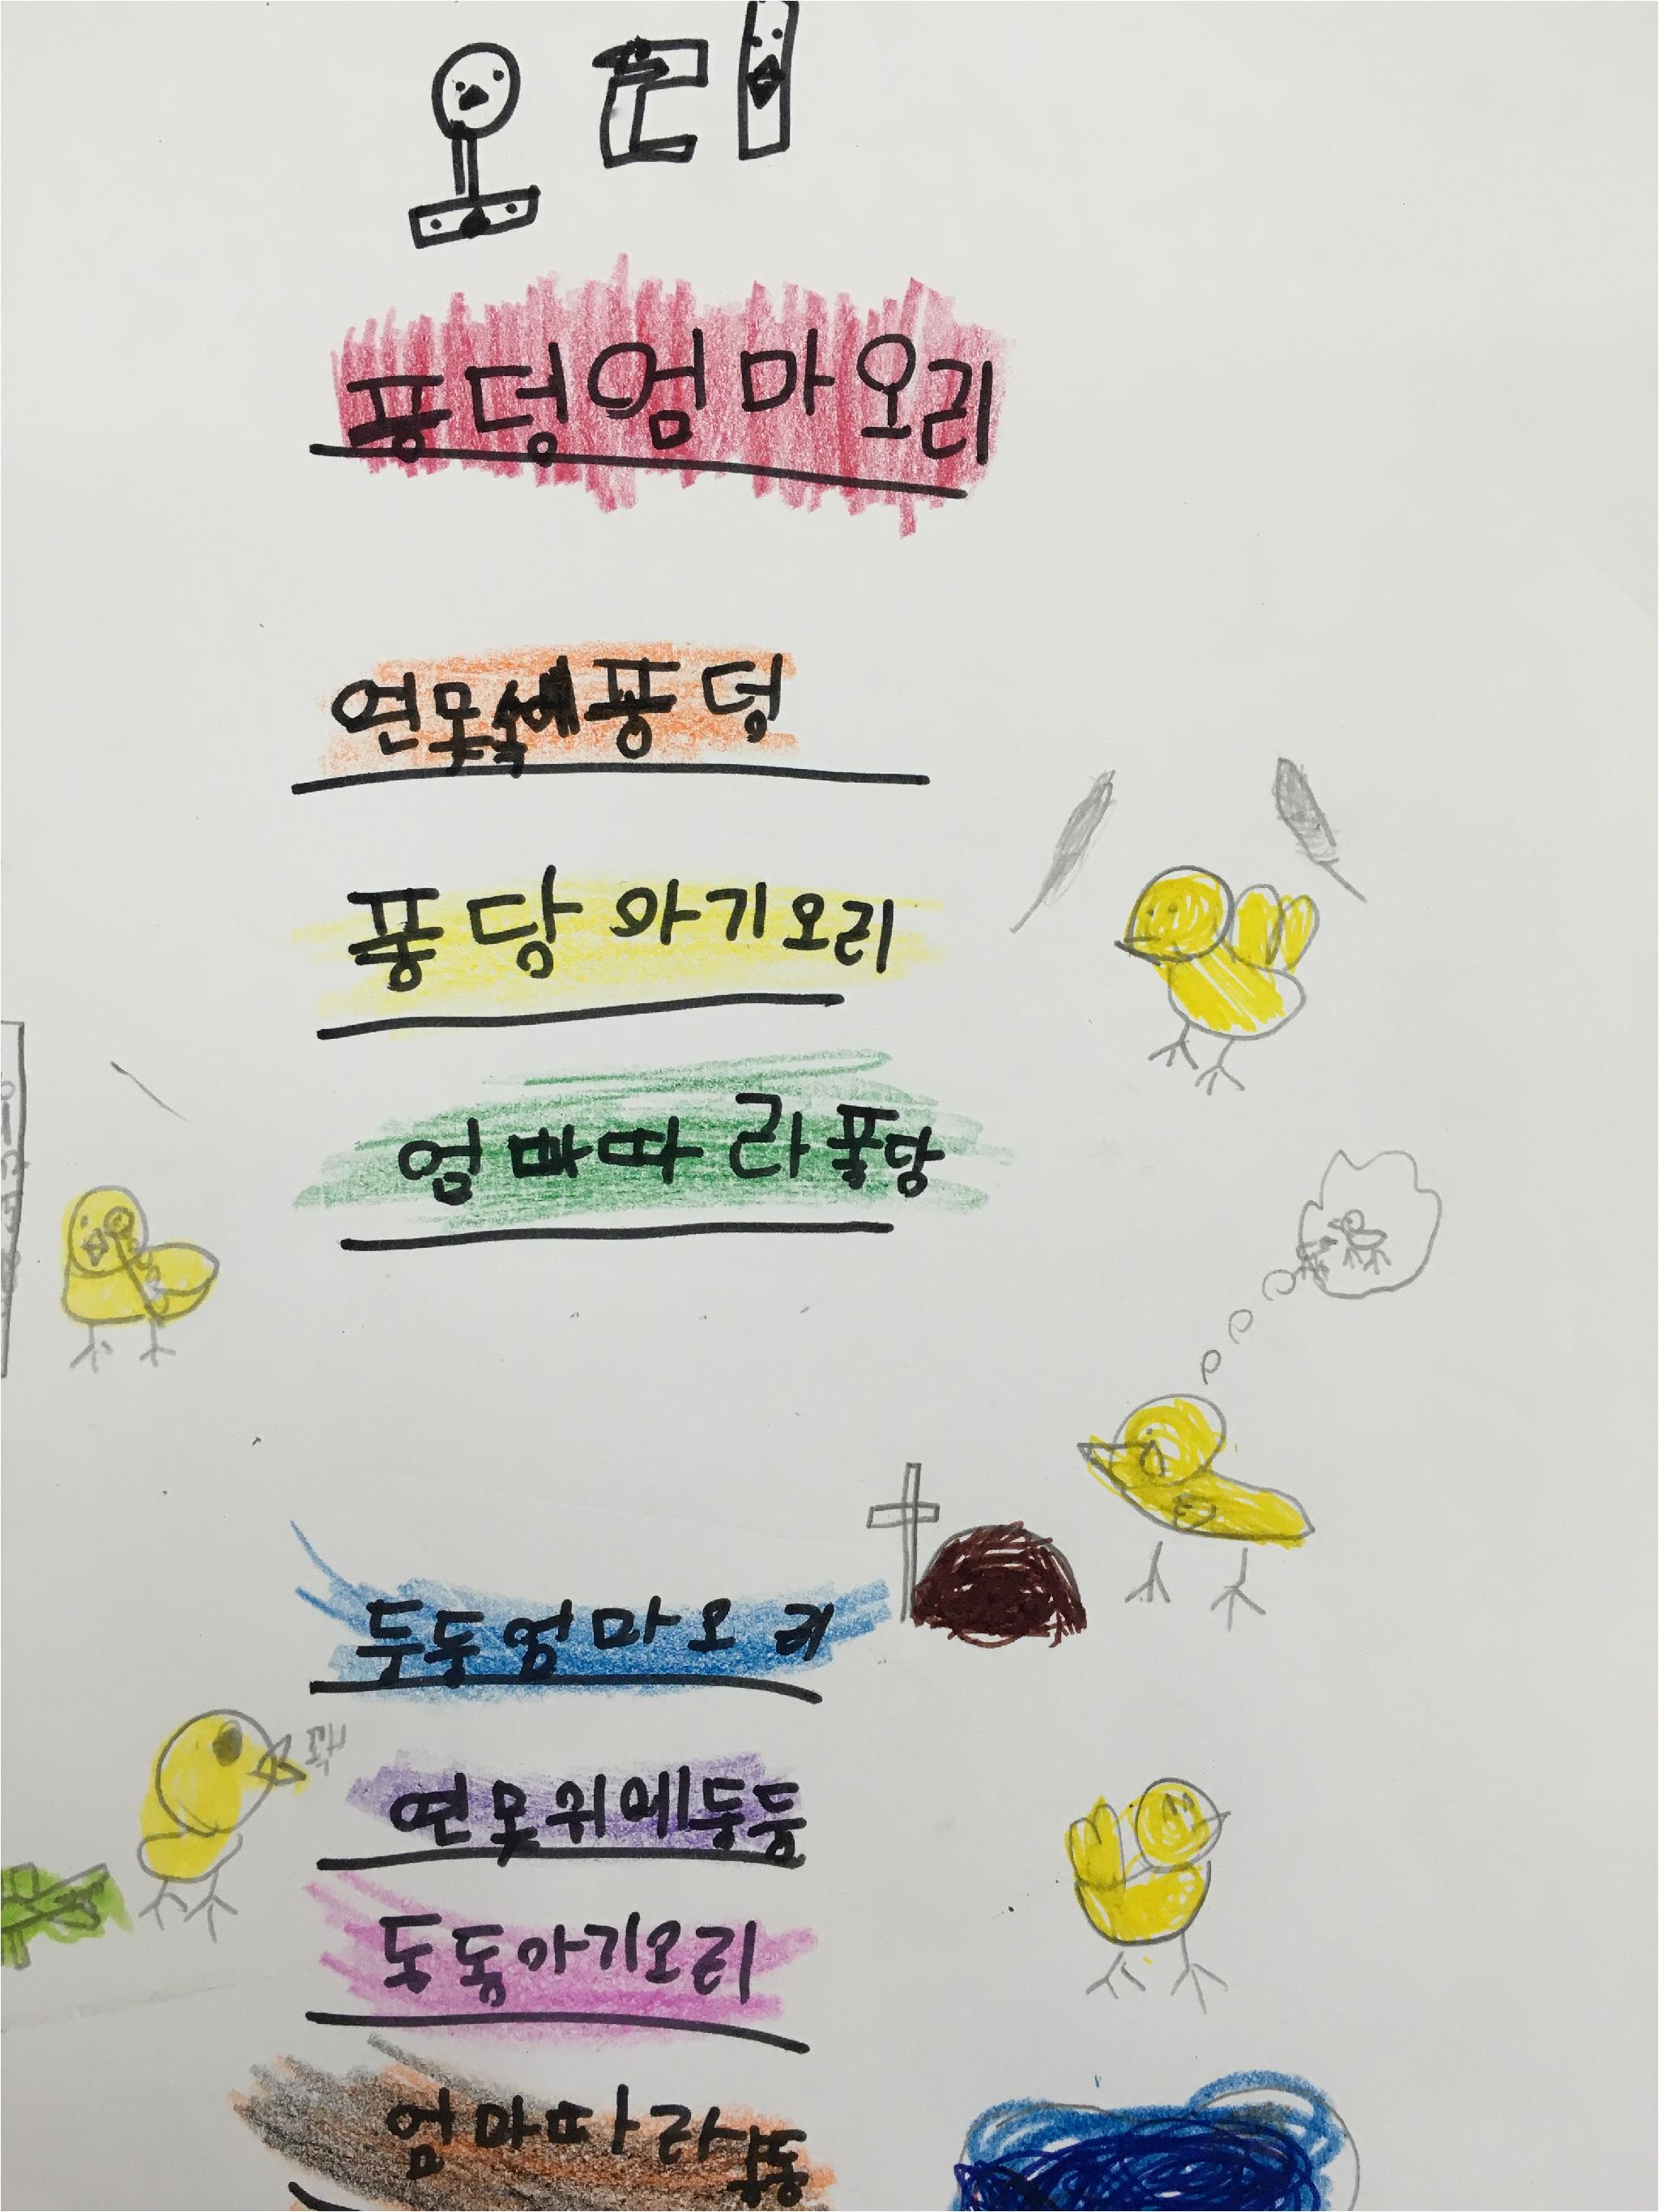 오리
퐁덩엄마오리
연못속에퐁덩
퐁당아기오리
엄마따라퐁당
둥둥엄마오리
꽥
연못위에둥둥
동동아기오리
엄마따라동동